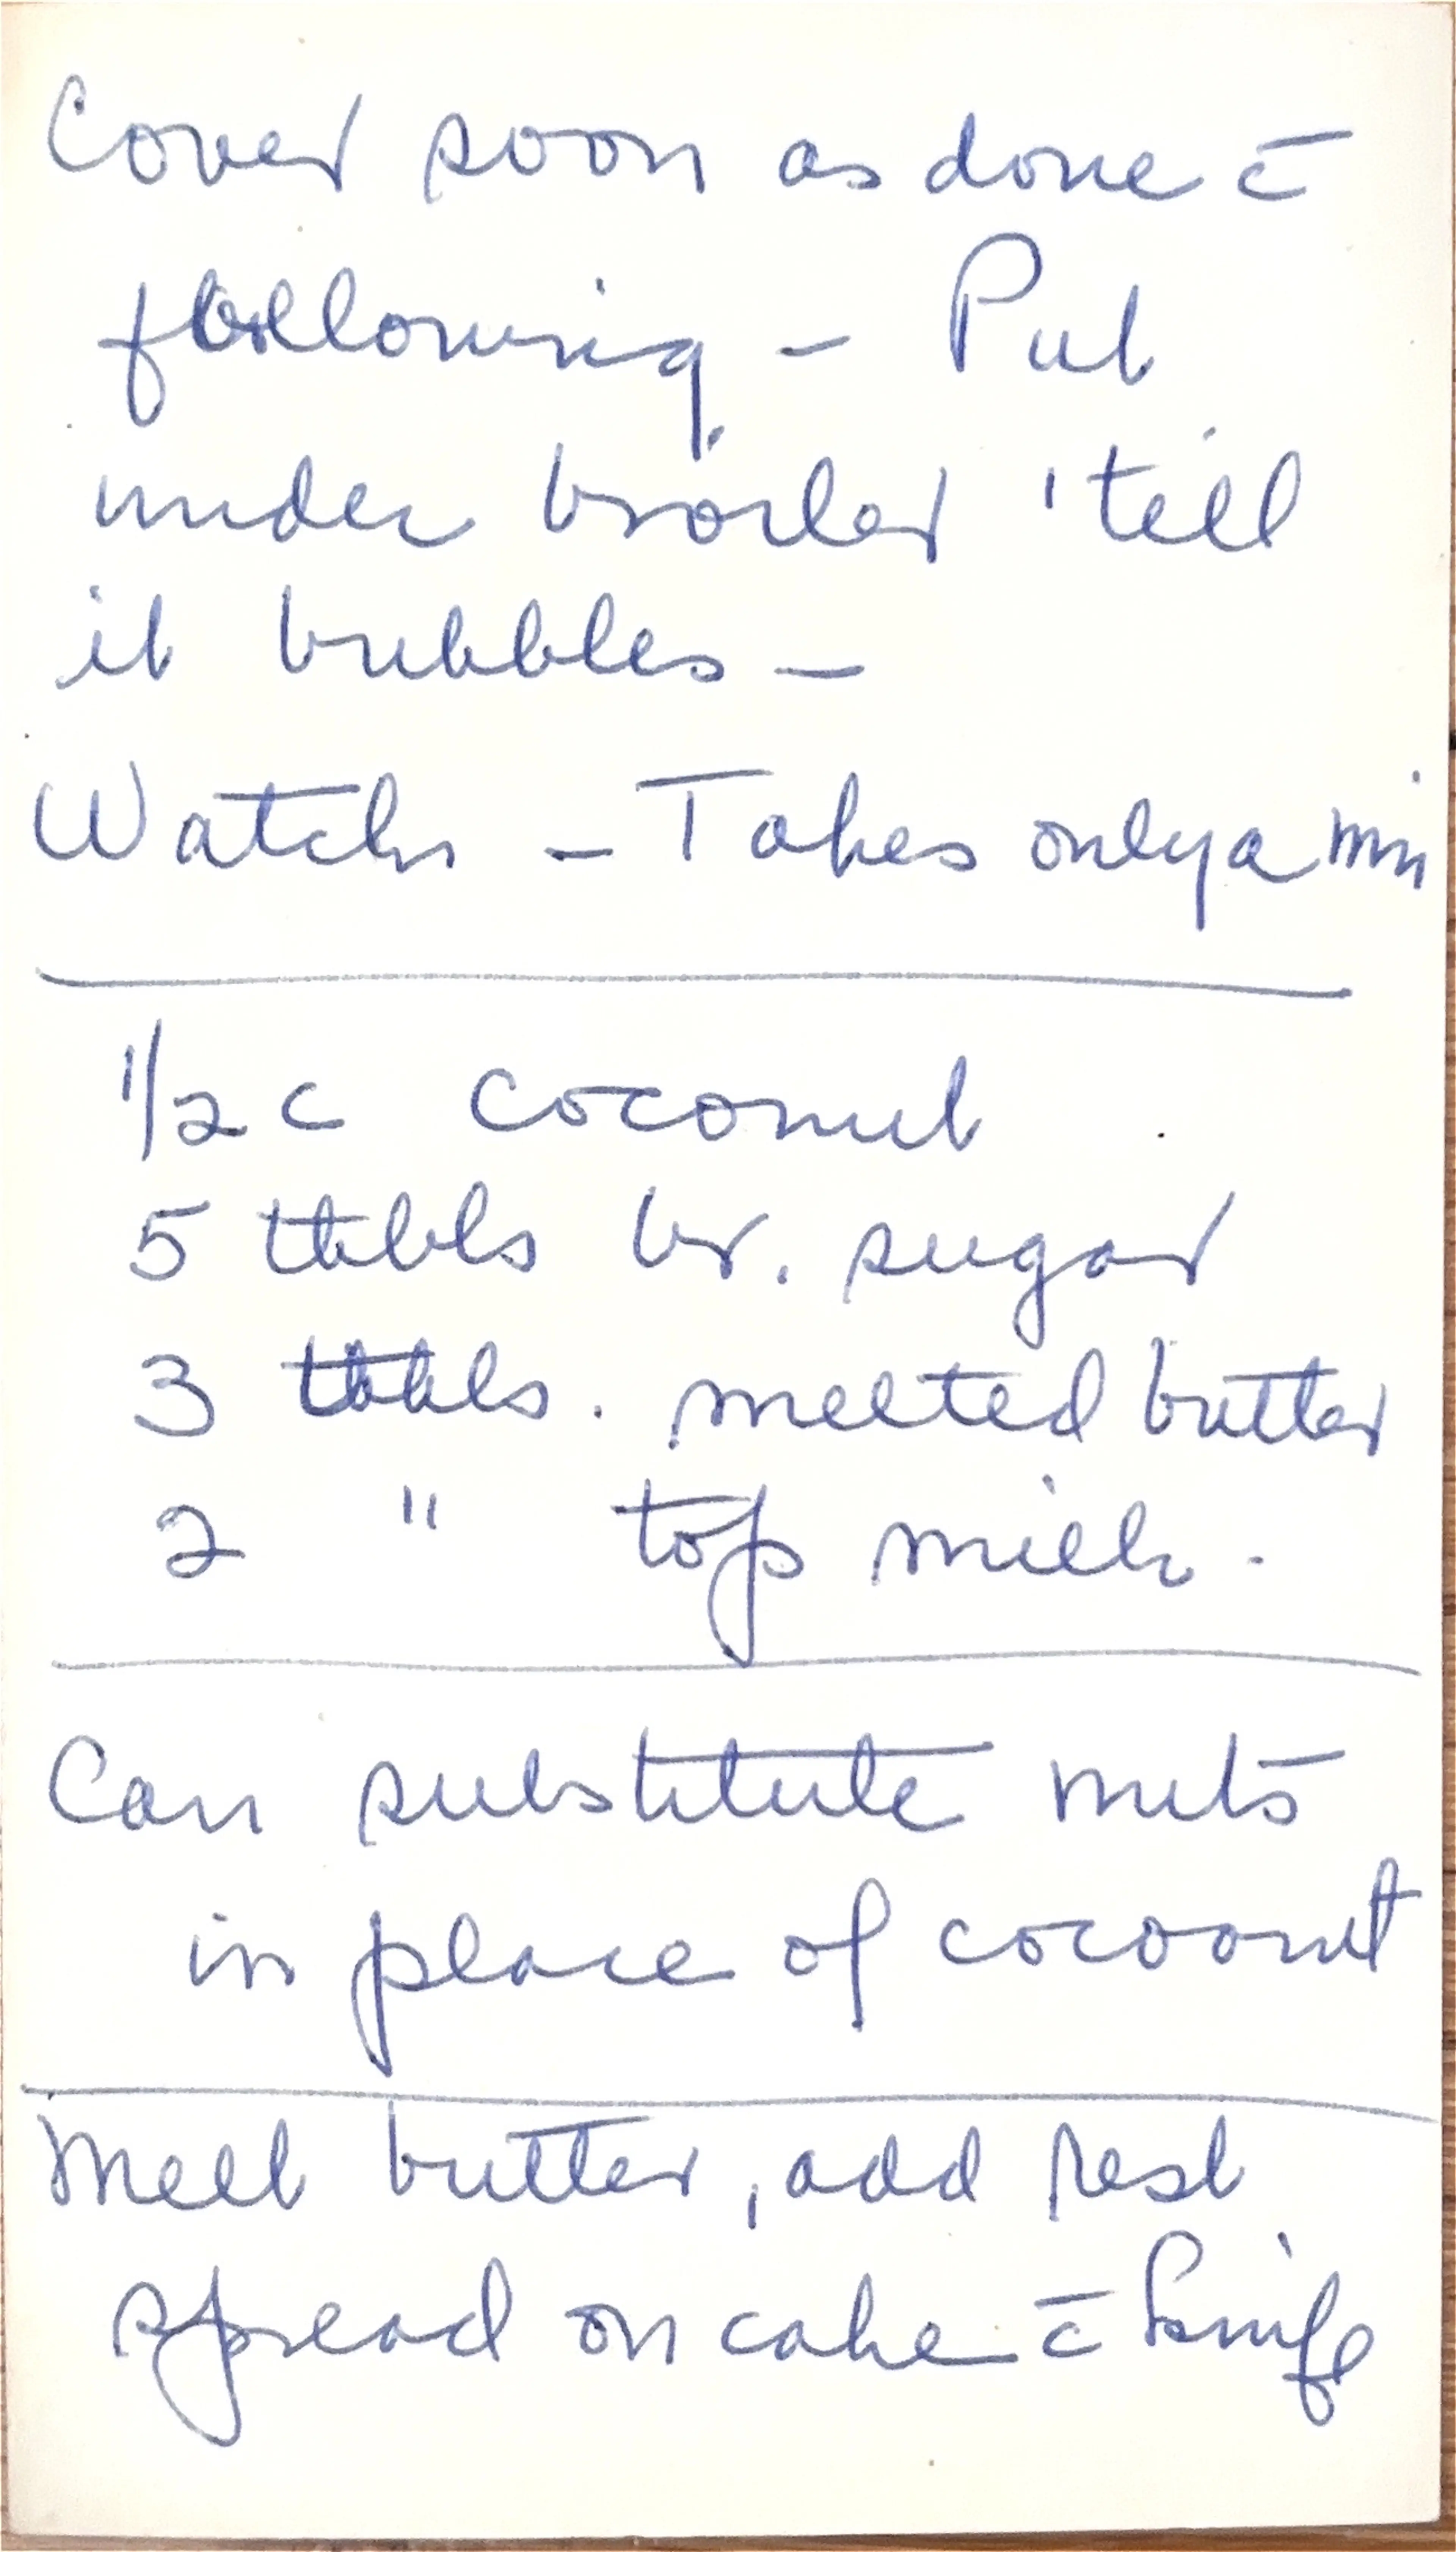 Cover soon as done c̄
following - Put
under broiler 'till
it bubbles -
Watch - Takes only a min
1/2 c coconut
5 tbls br. sugar
3 tbls. melted butter
2 " top milk.
Can substitute nuts
in place of cocoanut
Melt butter, add rest
spread on cake c̄ knife